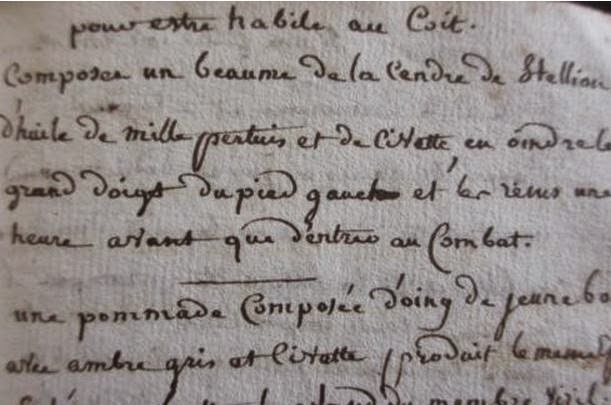 pour estre habile au Coit.
Composer un beaume de la Cendre de Stellion
d'huile de mille pertuis et de Civette, en oindre le
grand doigt du pied gauche et les reins une
heure avant que d'entrer au Combat.
une pommade Composée d'oing de jeune bo
avec ambre gris et Civette produit le mesme
du membre viril